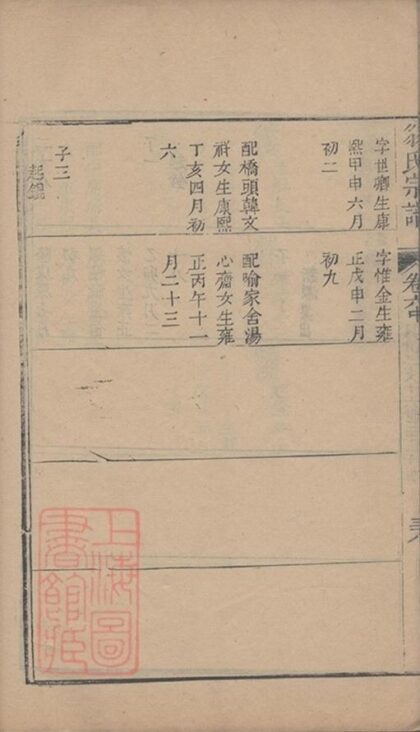 翁氏宗譜
卷六
字世卿生康
熙甲申六月
初二
配橋頭韓文
祥女生康熙
丁亥四月初
六
子三
起錫
字惟金生雍
正戊申二月
初九
配喻家舍湯
心齋女生雍
正丙午十一
月二十三
上海圖
書館藏